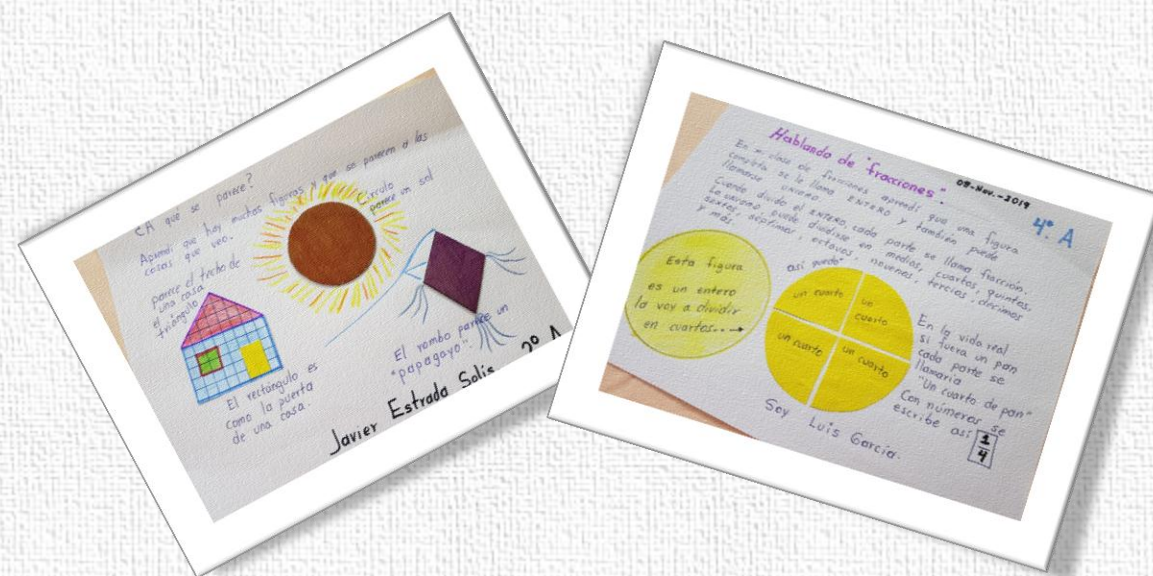 ¿A que se parece?
Aprendí que hay muchas figuras y que se parecen a las
cosas que veo.
Círculo
parece un sol
parece el techo de
una casa
el triángulo
El rectángulo es
como la puerta
de una casa.
El rombo parece un
"papagayo".
Javier Estrada Solís 2º A
Hablando de "fracciones".
08-Nov.-2019
4º. A
En mi clase de fracciones aprendí que una figura
completa se le llama ENTERO y también puede
llamarse UNIDAD.
Cuando divido el ENTERO, cada parte se llama fracción.
La unidad puede dividirse en medios, cuartos, quintos,
sextos, séptimos, octavos, novenos, tercios, décimos
y más.
así quedó
Esta figura
es un entero
la voy a dividir
en cuartos...
un cuarto
un
cuarto
un cuarto
un cuarto
En la vida real
si fuera un pan
cada parte se
llamaría
"Un cuarto de pan"
Con números se
escribe así
1
4
Soy Luis García.